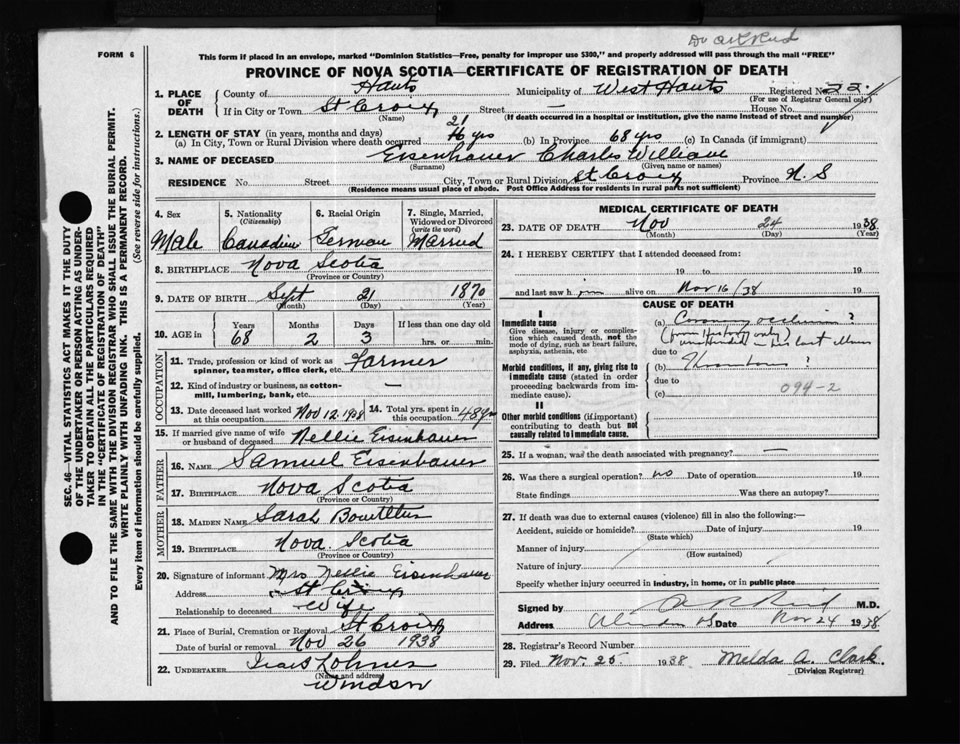 Dr
FORM 6
This form if placed in an envelope, marked "Dominion Statistics—Free, penalty for improper use $300," and properly addressed will pass through the mail "FREE"
PROVINCE OF NOVA SCOTIA—CERTIFICATE OF REGISTRATION OF DEATH
1. PLACE OF DEATH
County of Hants Municipality of West Hants Registered No. 22
(For use of Registrar General only)
If in City or Town St Croix Street — House No.
(Name) (If death occurred in a hospital or institution, give the name instead of street and number)
2. LENGTH OF STAY (in years, months and days)
21
(a) In City, Town or Rural Division where death occurred yrs (b) In Province 68 yrs (c) In Canada (if immigrant)
3. NAME OF DECEASED Eisenhauer Charles William
(Surname) (Given name or names)
RESIDENCE No. Street City, Town or Rural Division St Croix Province N.S
(Residence means usual place of abode. Post Office Address for residents in rural parts not sufficient)
SEC. 46—VITAL STATISTICS ACT MAKES IT THE DUTY
OF THE UNDERTAKER OR PERSON ACTING AS UNDER-
TAKER TO OBTAIN ALL THE PARTICULARS REQUIRED
IN THE "CERTIFICATE OF REGISTRATION OF DEATH"
AND TO FILE THE SAME WITH THE DIVISION REGISTRAR WHO SHALL ISSUE THE BURIAL PERMIT.
WRITE PLAINLY WITH UNFADING INK. THIS IS A PERMANENT RECORD.
Every item of information should be carefully supplied. (See reverse side for instructions.)
4. Sex
Male
5. Nationality
(Citizenship)
Canadian
6. Racial Origin
German
7. Single, Married,
Widowed or Divorced
(write the word)
Married
8. BIRTHPLACE Nova Scotia
(Province or Country)
9. DATE OF BIRTH Sept 21 1870
(Month) (Day) (Year)
10. AGE in
Years Months Days If less than one day old
68 2 3 hrs. or min.
OCCUPATION
11. Trade, profession or kind of work as
spinner, teamster, office clerk, etc. Farmer
12. Kind of industry or business, as cotton-
mill, lumbering, bank, etc. —
13. Date deceased last worked
at this occupation Nov 12, 1938
14. Total yrs. spent in
this occupation 48
15. If married give name of wife
or husband of deceased Nellie Eisenhauer
FATHER
16. NAME Samuel Eisenhauer
17. BIRTHPLACE Nova Scotia
(Province or Country)
MOTHER
18. MAIDEN NAME Sarah
19. BIRTHPLACE Nova Scotia
(Province or Country)
20. Signature of informant Mrs Nellie Eisenhauer
Address St Croix
Relationship to deceased Wife
21. Place of Burial, Cremation or Removal St Croix
Date of burial or removal Nov 26 1938
22. UNDERTAKER Lohnes
(Name and address)
Windsor
MEDICAL CERTIFICATE OF DEATH
23. DATE OF DEATH Nov 24 1938
(Month) (Day) (Year)
24. I HEREBY CERTIFY that I attended deceased from:
19 to 19
and last saw him alive on Nov 16/38 19
I
Immediate cause
Give disease, injury or complica-
tion which caused death, not the
mode of dying, such as heart failure,
asphyxia, asthenia, etc
Morbid conditions, if any, giving rise to
immediate cause (stated in order
proceeding backwards from im-
mediate cause).
II
Other morbid conditions (if important)
contributing to death but not
causally related to immediate cause.
CAUSE OF DEATH
(a) Coronary occlusion ?
(from history only
unattended in his last illness
due to
(b) Thrombus ?
due to
(c) 094-2
25. If a woman, was the death associated with pregnancy? —
26. Was there a surgical operation? no Date of operation 19
State findings Was there an autopsy?
27. If death was due to external causes (violence) fill in also the following:—
Accident, suicide or homicide? Date of injury 19
(State which)
Manner of injury
(How sustained)
Nature of injury
Specify whether injury occurred in industry, in home, or in public place
Signed by Reid M.D.
Address Date Nov 24 1938
28. Registrar's Record Number
29. Filed Nov. 25 1938 Melda A. Clark.
(Division Registrar)